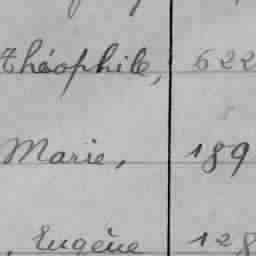 Théophile, 622
Marie, 189
, Eugène 128